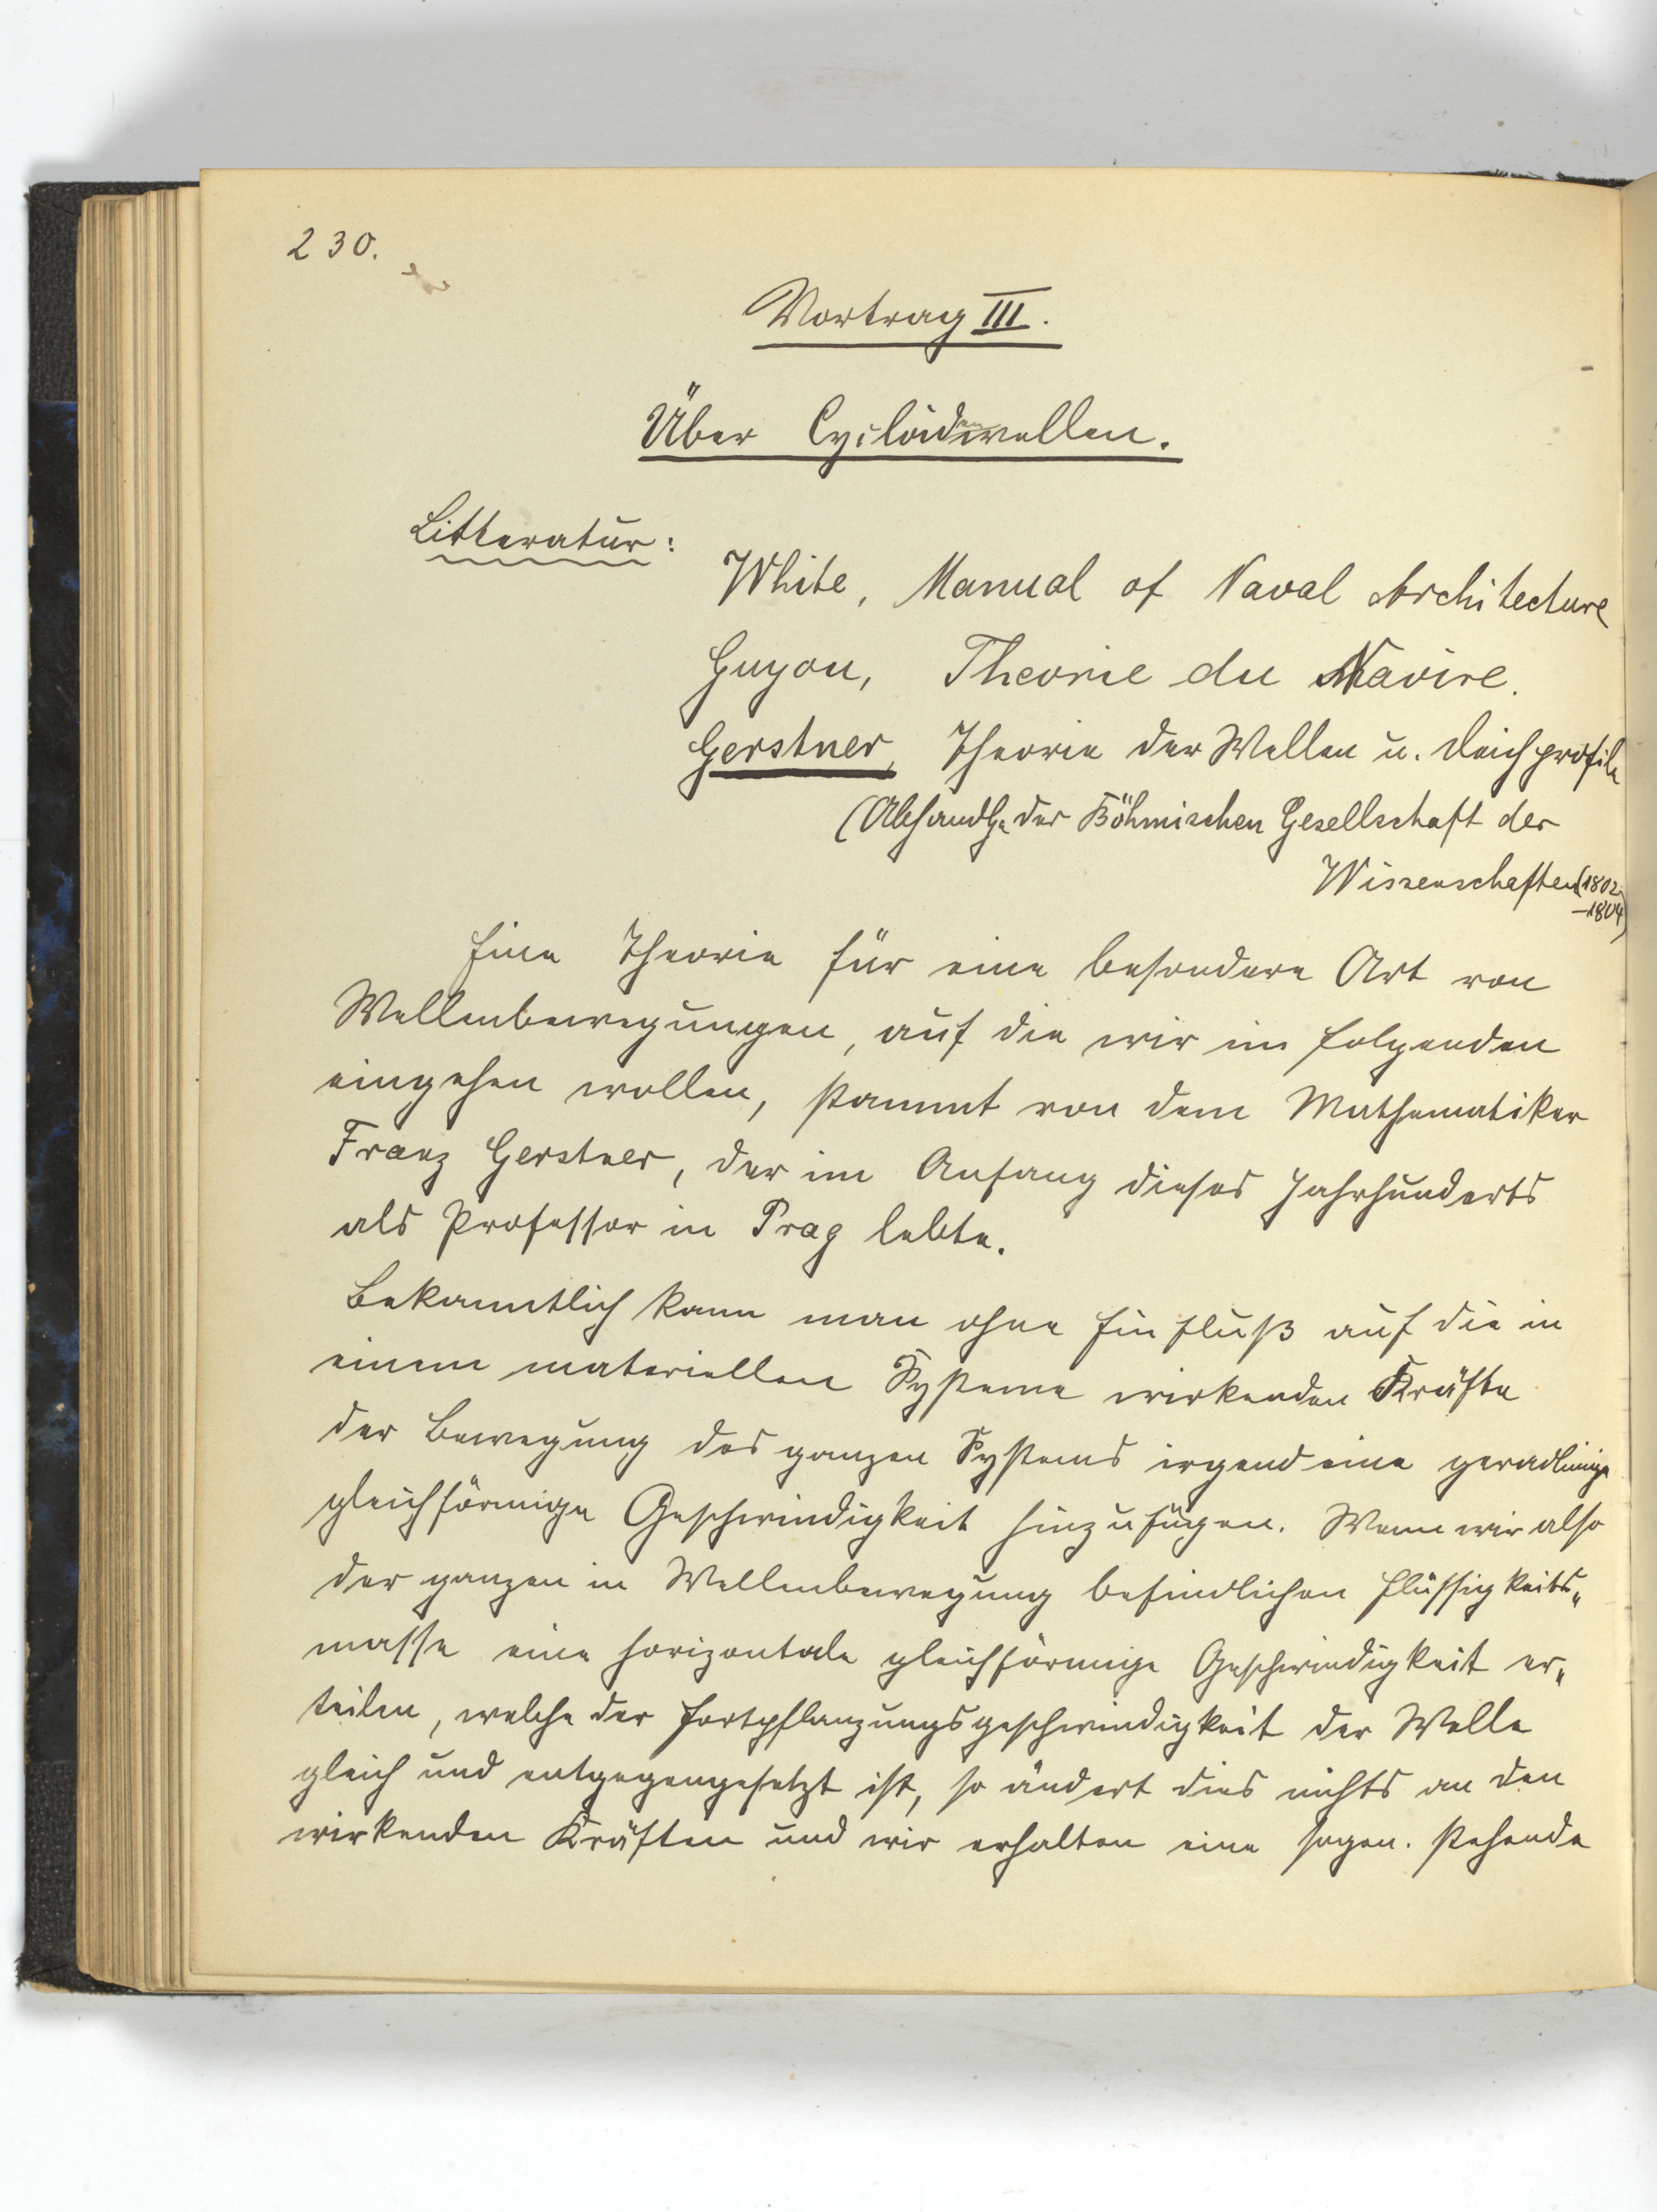 230.
Vortrag III.
Über Cycloidenwellen.
Litteratur:
White, Manual of Naval Architecture
Guyou, Theorie du Navire.
Gerstner, Theorie der Wellen u. Deichprofile
(Abhandlg. der Böhmischen Gesellschaft der
Wissenschaften (1802
–1804)
Eine Theorie für eine besondere Art von
Wellenbewegungen, auf die wir im folgenden
eingehen wollen, stammt von dem Mathematiker
Franz Gerstner, der im Anfang dieses Jahrhunderts
als Professor in Prag lebte.
Bekanntlich kann man ohne Einfluß auf die in
einem materiellen Systeme wirkenden Kräfte
der Bewegung des ganzen Systems irgend eine geradlinige
gleichförmige Geschwindigkeit hinzufügen. Wenn wir also
der ganzen in Wellenbewegung befindlichen Flüssigkeits„
masse eine horizontale gleichförmige Geschwindigkeit er„
teilen, welche der Fortpflanzungsgeschwindigkeit der Welle
gleich und entgegengesetzt ist, so ändert dies nichts an den
wirkenden Kräften und wir erhalten eine sogen. stehende